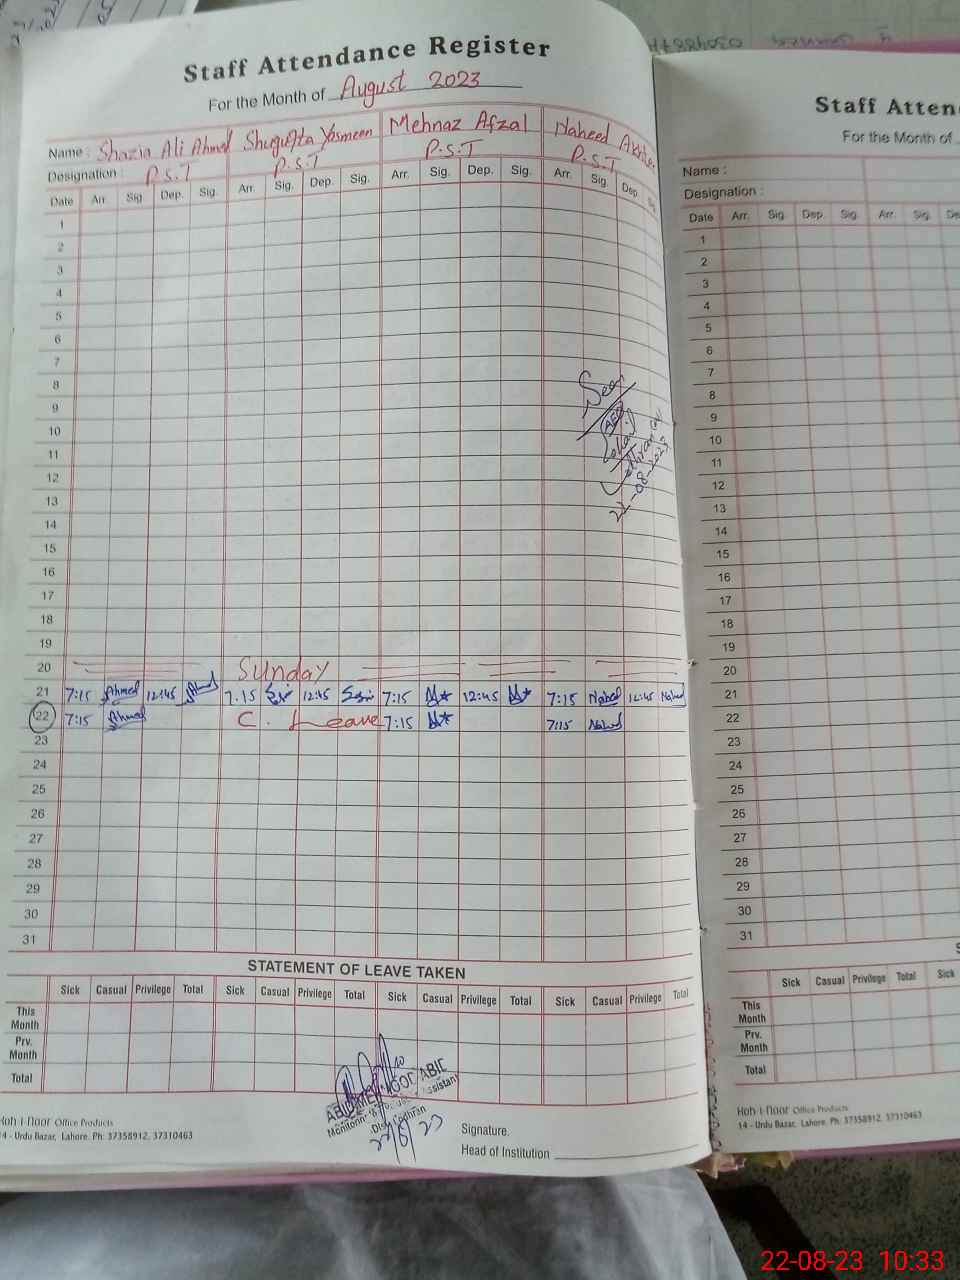 Staff Attendance Register
For the Month of August 2023
Name : Shazia Ali Ahmed Shugufta Yasmeen Mehnaz Afzal Naheed Akhter
Designation : P.S.T P.S.T P.S.T P.S.T
Date Arr. Sig. Dep. Sig. Arr. Sig. Dep. Sig. Arr. Sig. Dep. Sig. Arr. Sig. Dep. Sig.
1
2
3
4
5
6
7
8
9
10
11
12
13
14
15
16
17
18
19
20 Sunday
21 7:15 Ahmed 12:45 Ahmed 7.15 12:45 7:15 12:45 7:15 Naheed 12:45 Naheed
22 7:15 Ahmed C. Leave 7:15 7:15 Naheed
23
24
25
26
27
28
29
30
31
Seen
AEO
22-08-2023
STATEMENT OF LEAVE TAKEN
Sick Casual Privilege Total Sick Casual Privilege Total Sick Casual Privilege Total Sick Casual Privilege Total
This Month
Prv. Month
Total
Assistant
Lodhran
22/8/23
Signature.
Head of Institution
Koh-i-Noor Office Products
14 - Urdu Bazar, Lahore. Ph: 37358912, 37310463
Staff Atten
For the Month of
Name :
Designation :
Date Arr. Sig. Dep. Sig. Arr. Sig. De
1
2
3
4
5
6
7
8
9
10
11
12
13
14
15
16
17
18
19
20
21
22
23
24
25
26
27
28
29
30
31
S
Sick Casual Privilege Total Sick
This Month
Prv. Month
Total
Koh-i-Noor Office Products
14 - Urdu Bazar, Lahore. Ph: 37358912, 37310463
22-08-23 10:33